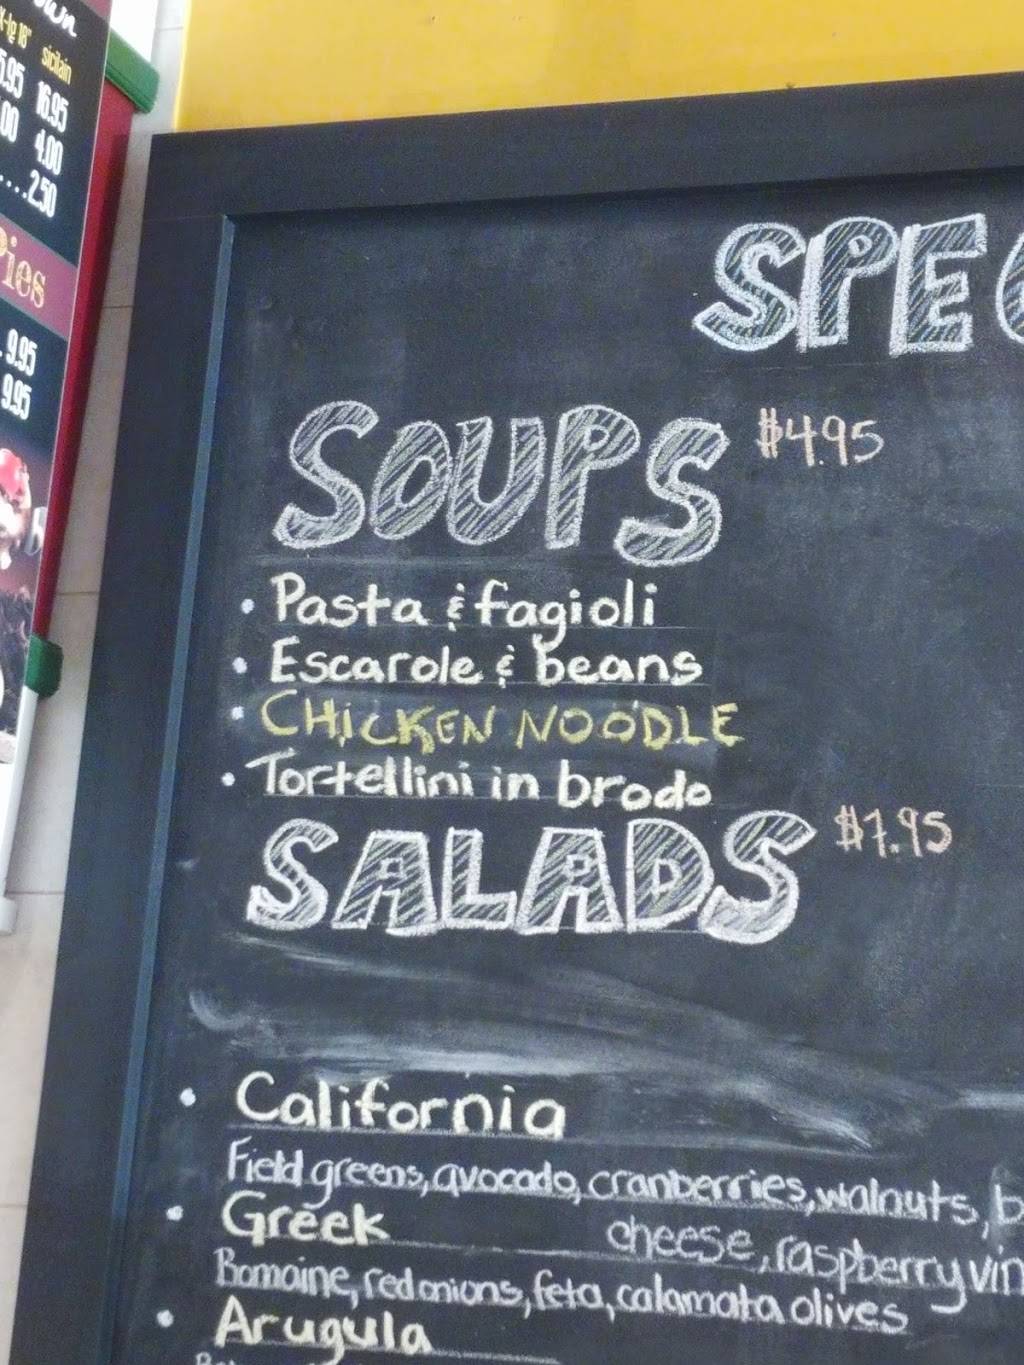 X-lg 18" sicilain
5.95 16.95
.00 4.00
....2.50
Pies
. 9.95
9.95
SPE
SOUPS $4.95
• Pasta & fagioli
• Escarole & beans
• CHICKEN NOODLE
• Tortellini in brodo
SALADS $7.95
• California
Field greens, avocado, cranberries, walnuts, b
cheese, raspberry vin
• Greek
Romaine, red onions, feta, calamata olives
• Arugula